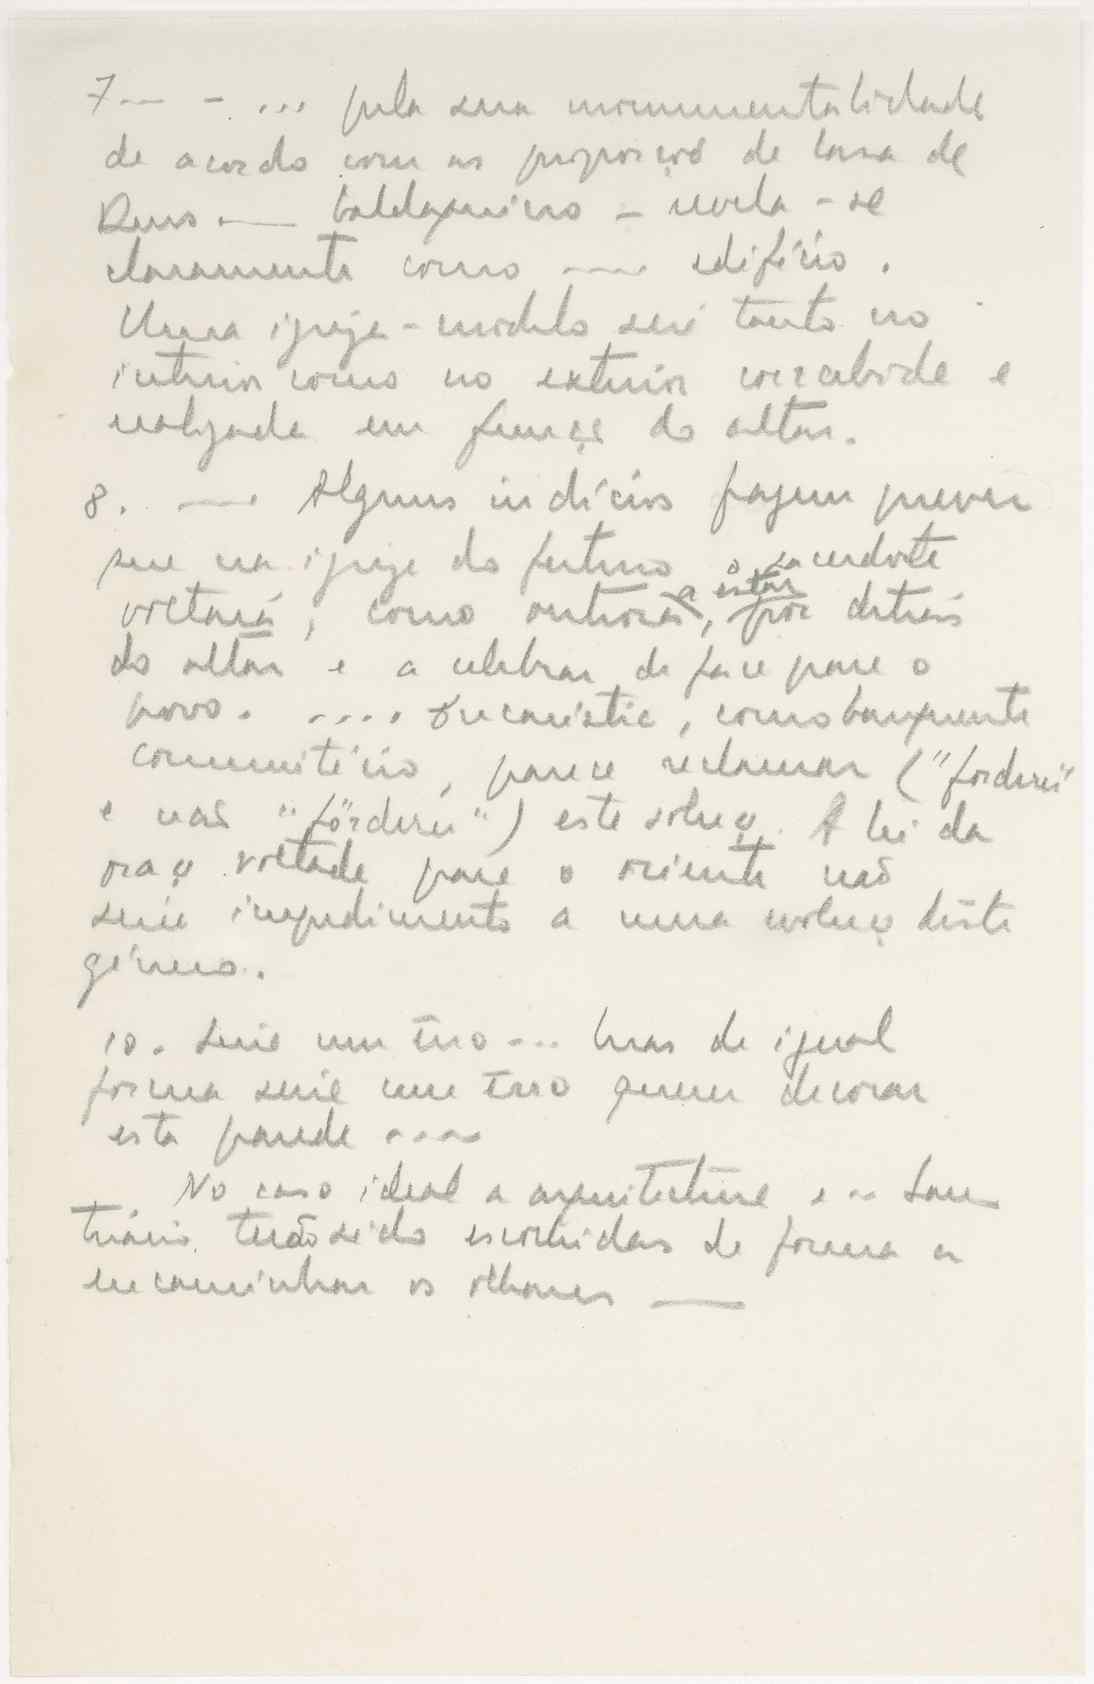 7 — - ... pela sua monumentalidade
de acordo com as proporçoẽ de Casa de
Deus. — baldaquino - revela-se
claramente como — edifício.
Uma igreja-modelo será tanto no
interior como no exterior concebida e
realizada em funçaõ do altar.
8. — Alguns indícios fazem prever
que na igreja do futuro o sacerdote
voltará, como outrora, a estar por detrás
do altar e a celebrar de face para o
povo. .... Eucaristia, como banquete
comunitário, parece reclamar ("fordern"
e naõ "fördern") esta soluço. A lei da
oraço voltada para o oriente naõ
seria impedimento a uma evoluço dêste
género.
10. Seria um êrro ... Mas de igual
forma seria um êrro querer decorar
esta parede ....
No caso ideal a arquitectura e .. San
tuário teraõ sido escolhidas de forma a
encaminhar os olhares —